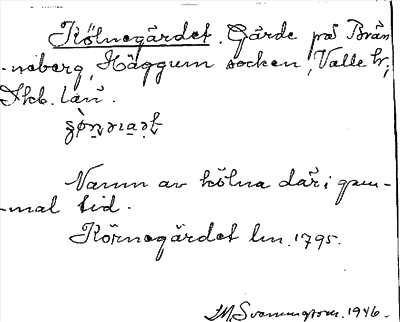 Kölnegärdet. Gärde på Brän-
-neberg, Häggum socken, Valle hr,
Skb. län.
Namn av kölna där i gam-
-mal tid.
Körnegärdet lm. 1795.
1946.